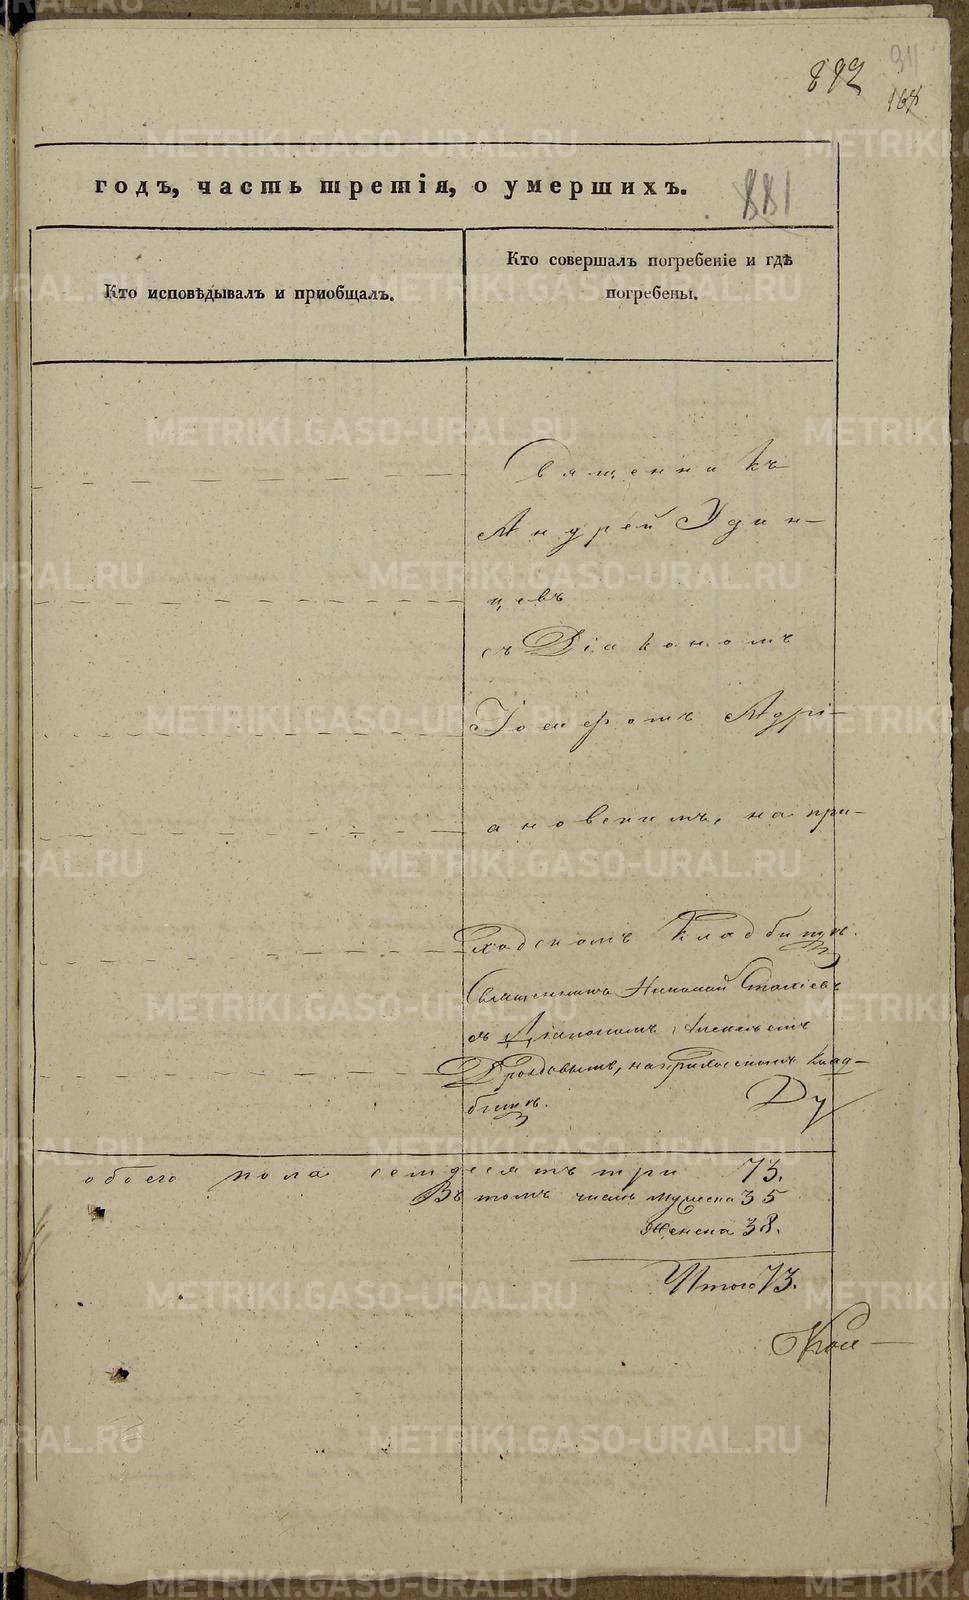 892
881
годъ, часть третія, о умершихъ.
Кто исповѣдывалъ и пріобщалъ.
Кто совершалъ погребеніе и гдѣ
погребены.
Священникъ
Андрей Удин-
цевъ
съ Діакономъ
Іосифомъ Адрі-
ановскимъ, на при-
ходскомъ Кладбищѣ.
Священникъ Николай
съ Діакономъ Алексѣемъ
Дроздовымъ, на приходскомъ клад-
бищѣ.
Ду
обоего пола семдесятъ три 73.
Въ томъ числѣ мужеска 35
женска 38.
Итого 73.
METRIKI.GASO-URAL.RU